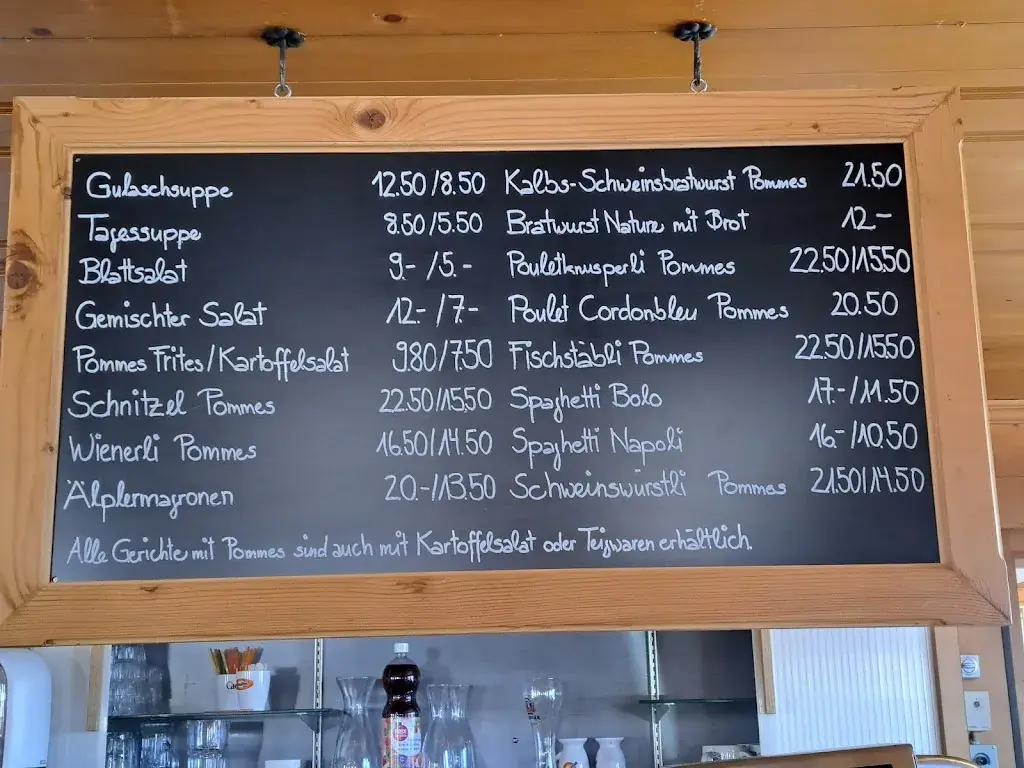 Gulaschsuppe 12.50/8.50
Tagessuppe 8.50/5.50
Blattsalat 9.-/5.-
Gemischter Salat 12.-/7.-
Pommes Frites/Kartoffelsalat 9.80/7.50
Schnitzel Pommes 22.50/15.50
Wienerli Pommes 16.50/14.50
Älplermagronen 20.-/13.50
Kalbs-Schweinsbratwurst Pommes 21.50
Bratwurst Nature mit Brot 12.-
Pouletknusperli Pommes 22.50/15.50
Poulet Cordonbleu Pommes 20.50
Fischstäbli Pommes 22.50/15.50
Spaghetti Bolo 17.-/11.50
Spaghetti Napoli 16.-/10.50
Schweinswürstli Pommes 21.50/14.50
Alle Gerichte mit Pommes sind auch mit Kartoffelsalat oder Teigwaren erhältlich.